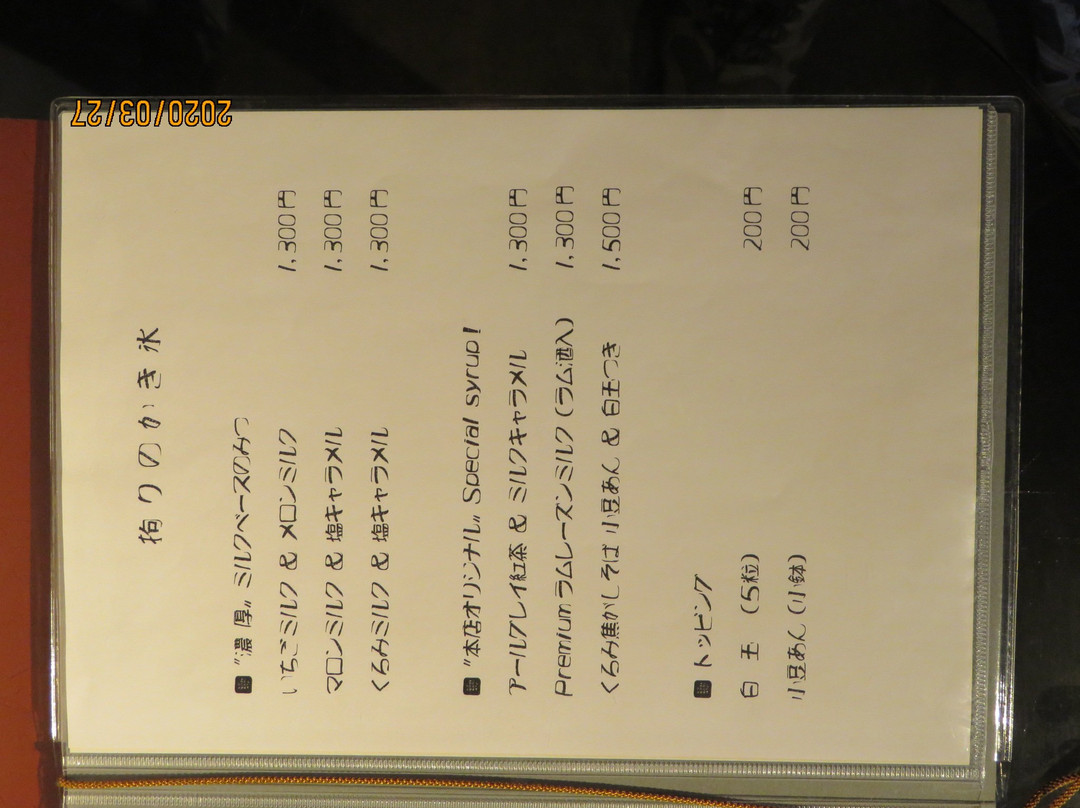 拘りのかき氷
"濃厚" ミルクベースのみつ
いちごミルク & メロンミルク 1,300円
マロンミルク & 塩キャラメル 1,300円
くるみミルク & 塩キャラメル 1,300円
"本店オリジナル" Special syrup!
アールグレイ紅茶 & ミルクキャラメル 1,300円
Premium ラムレーズンミルク (ラム酒入) 1,300円
くるみ焦がしそば 小豆あん & 白玉つき 1,500円
トッピング
白 玉 (5粒) 200円
小豆あん (小鉢) 200円
2020/03/27